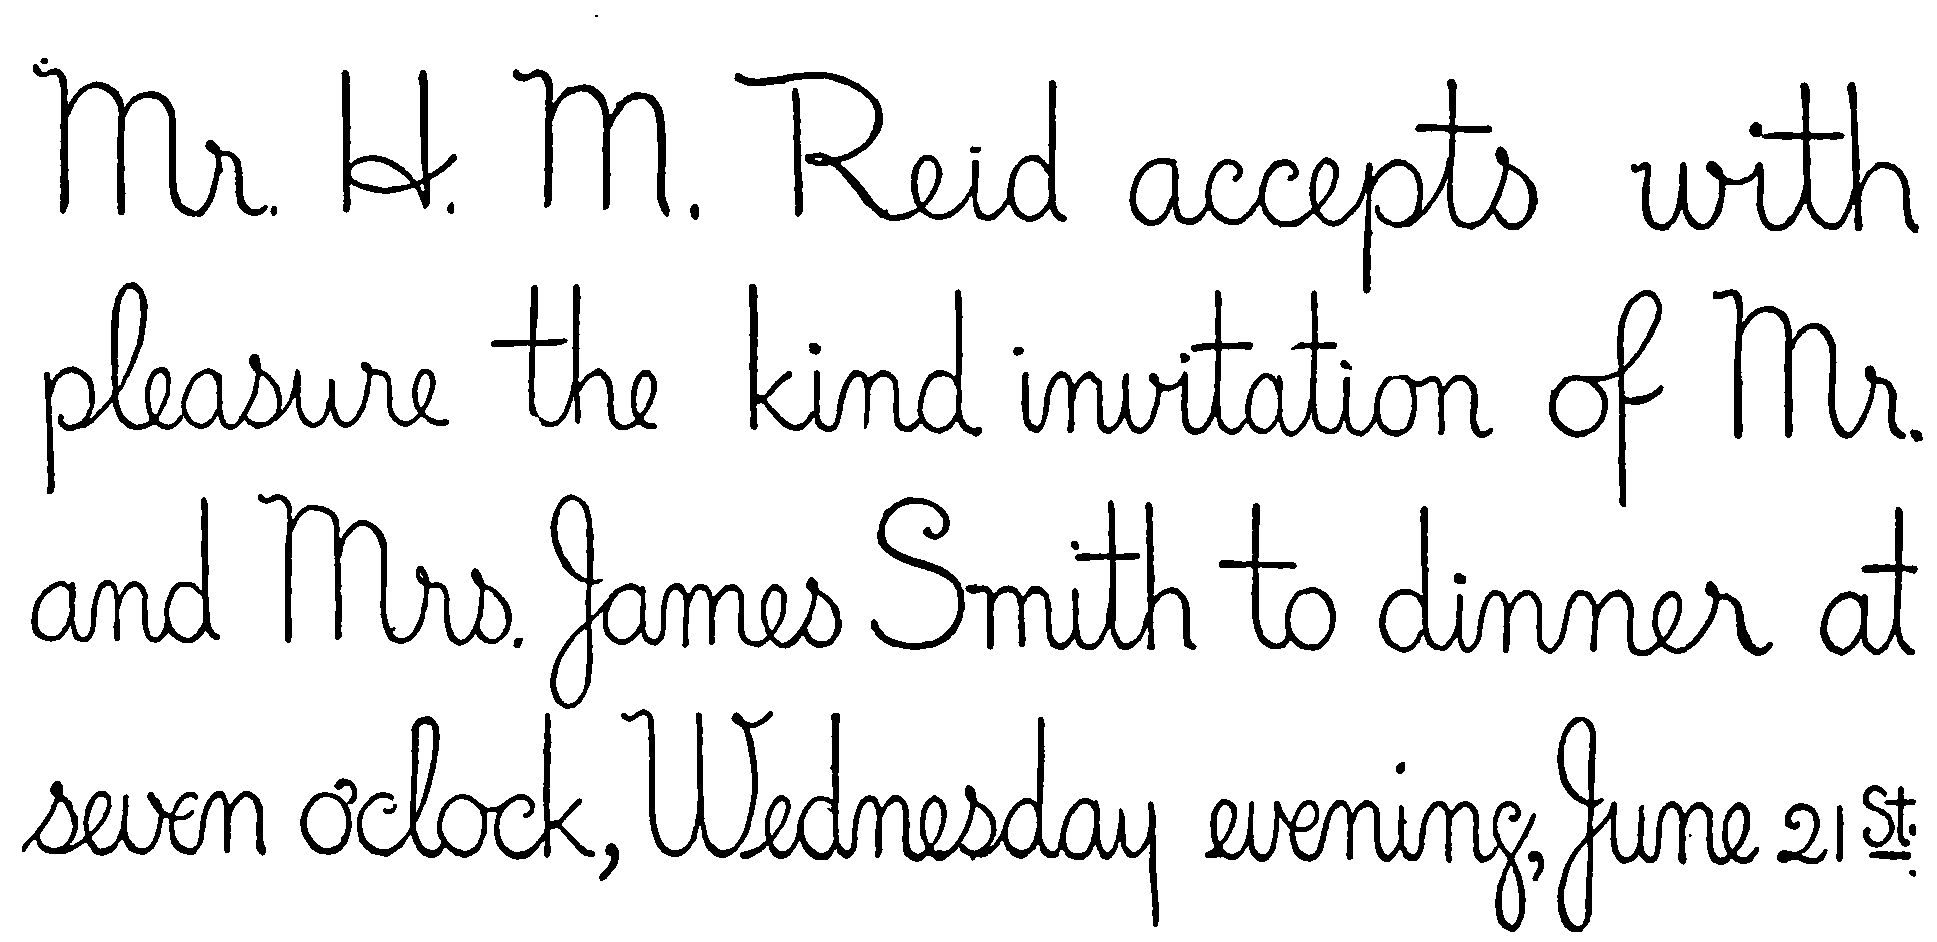 Mr. H. M. Reid accepts with
pleasure the kind invitation of Mr.
and Mrs. James Smith to dinner at
seven o'clock, Wednesday evening, June 21st.